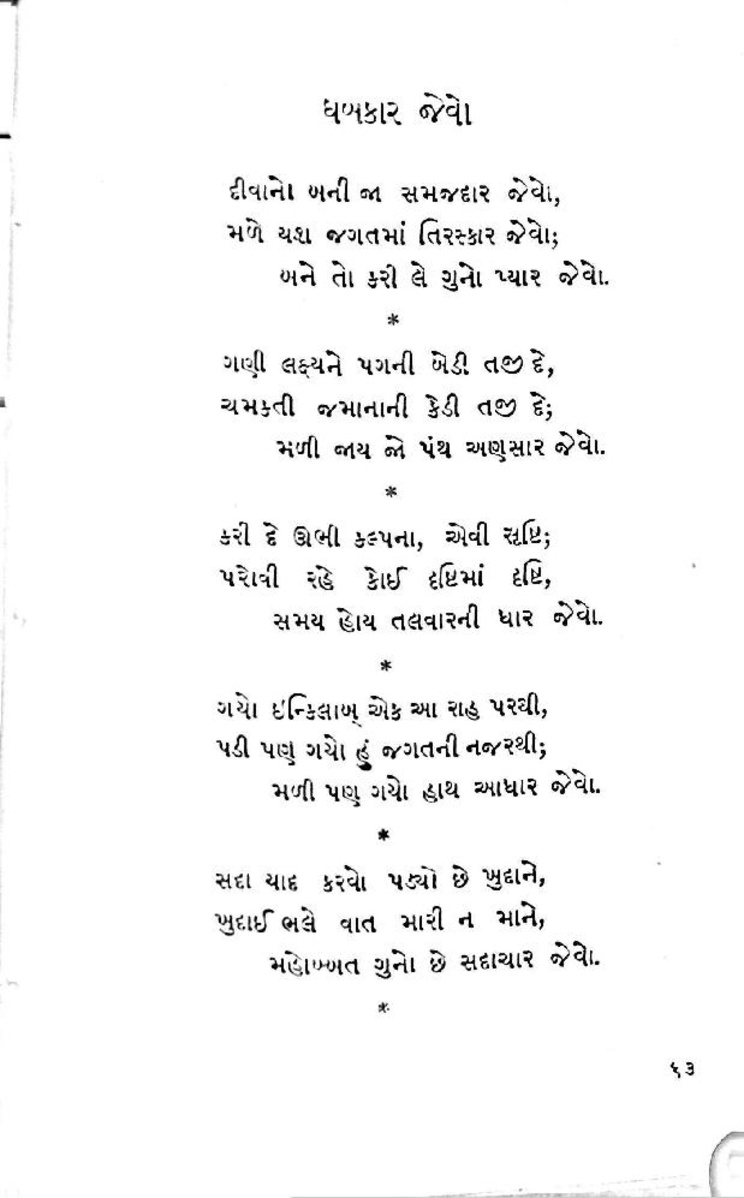 ધબકાર જેવો
દીવાનો બની જા સમજદાર જેવો,
મળે યશ જગતમાં તિરસ્કાર જેવો;
બને તો કરી લે ગુનો પ્યાર જેવો.
*
ગણી લક્ષ્યને પગની બેડી તજી દે,
ચમકતી જમાનાની કેડી તજી દે;
મળી જાય જો પંથ અણસાર જેવો.
*
કરી દે ઊભી કલ્પના, એવી સૃષ્ટિ;
પરોવી રહે કોઈ દૃષ્ટિમાં દૃષ્ટિ,
સમય હોય તલવારની ધાર જેવો.
*
ગયો ઇન્કિલાબ્ એક આ રાહ પરથી,
પડી પણ ગયો હું જગતની નજરથી;
મળી પણ ગયો હાથ આધાર જેવો.
*
સદા યાદ કરવો પડ્યો છે ખુદાને,
ખુદાઈ ભલે વાત મારી ન માને,
મહોબ્બત ગુનો છે સદાચાર જેવો.
*
૬૩